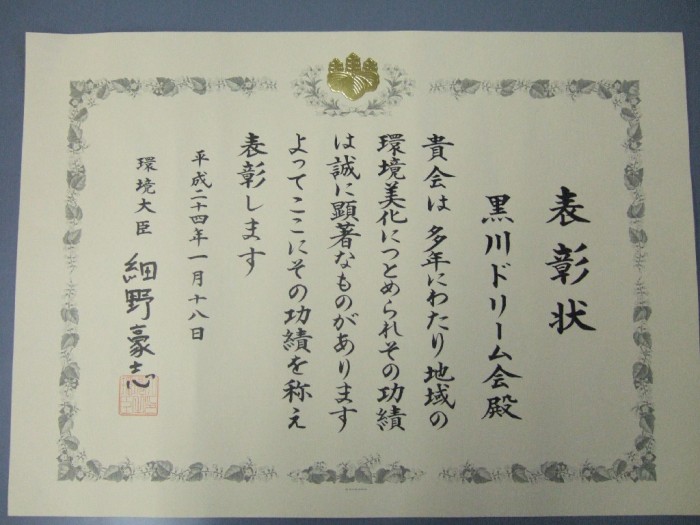 表彰状
黒川ドリーム会殿
貴会は多年にわたり地域の
環境美化につとめられその功績
は誠に顕著なものがあります
よってここにその功績を称え
表彰します
平成二十四年一月十八日
環境大臣 細野豪志